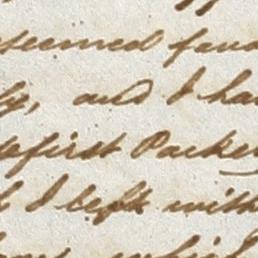 seemed fav
ly, and I ha
first Packe
I left with